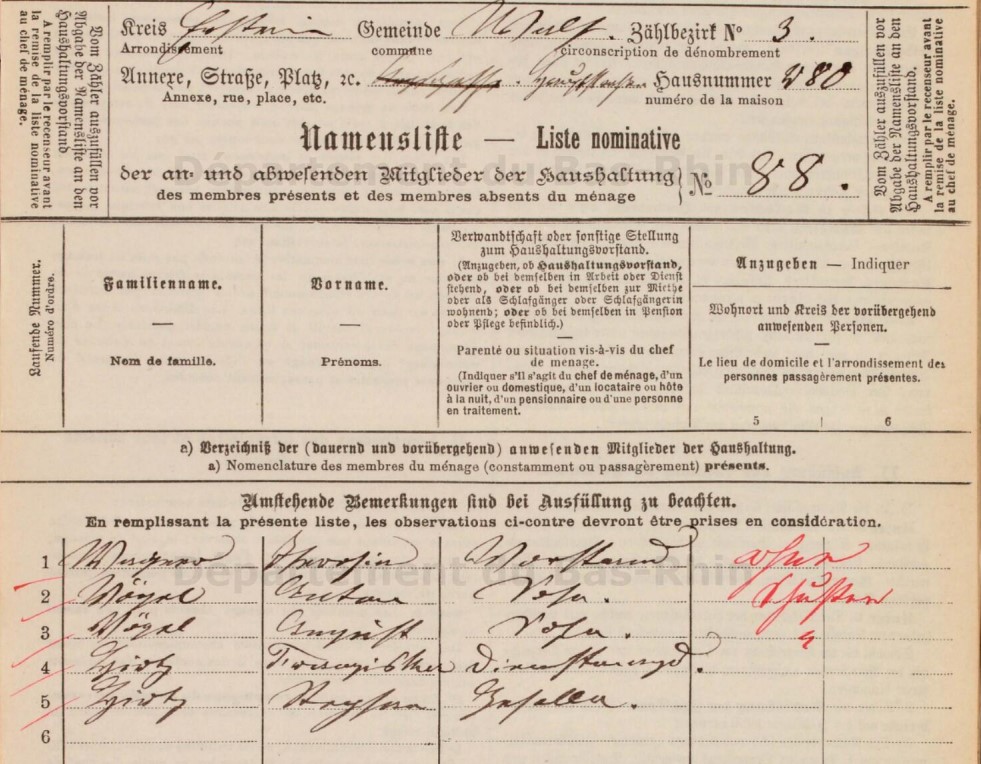 Kreis Erstein Gemeinde Zählbezirk Nº 3.
Arrondissement commune circonscription de dénombrement
Annexe, Straße, Platz, ꝛc. Hauptstraße Hausnummer 80
Annexe, rue, place, etc. numéro de la maison
Namensliste — Liste nominative
der an- und abwesenden Mitglieder der Haushaltung
des membres présents et des membres absents du ménage
Nº 88.
Vom Zähler auszufüllen vor
Abgabe der Namensliste an den
Haushaltungsvorstand
A remplir par le recenseur avant
la remise de la liste nominative
au chef de ménage.
Vom Zähler auszufüllen vor
Abgabe der Namensliste an den
Haushaltungsvorstand.
A remplir par le recenseur avant
la remise de la liste nominative
au chef de ménage.
Laufende Nummer.
Numéro d'ordre.
Familienname.
—
Nom de famille.
Vorname.
—
Prénoms.
Verwandtschaft oder sonstige Stellung
zum Haushaltungsvorstand.
(Anzugeben, ob Haushaltungsvorstand,
oder ob bei demselben in Arbeit oder Dienst
stehend, oder ob bei demselben zur Miethe
oder als Schlafgänger oder Schlafgängerin
wohnend; oder ob bei demselben in Pension
oder Pflege befindlich.)
—
Parenté ou situation vis-à-vis du chef
de menage.
(Indiquer s'il s'agit du chef de ménage, d'un
ouvrier ou domestique, d'un locataire ou hôte
à la nuit, d'un pensionnaire ou d'une personne
en traitement.
Anzugeben — Indiquer
Wohnort und Kreis der vorübergehend
anwesenden Personen.
—
Le lieu de domicile et l'arrondissement des
personnes passagèrement présentes.
5 6
a) Verzeichniß der (dauernd und vorübergehend) anwesenden Mitglieder der Haushaltung.
a) Nomenclature des membres du ménage (constamment ou passagèrement) présents.
Umstehende Bemerkungen sind bei Ausfüllung zu beachten.
En remplissant la présente liste, les observations ci-contre devront être prises en considération.
1 Wagner Vorstand
2 Vögel Anton Sohn.
3 Vögel August Sohn.
4 Hirtz Franziska Dienstmagd.
5 Hirtz Stephan Geselle.
6
Département du Bas-Rhin
Département du Bas-Rhin